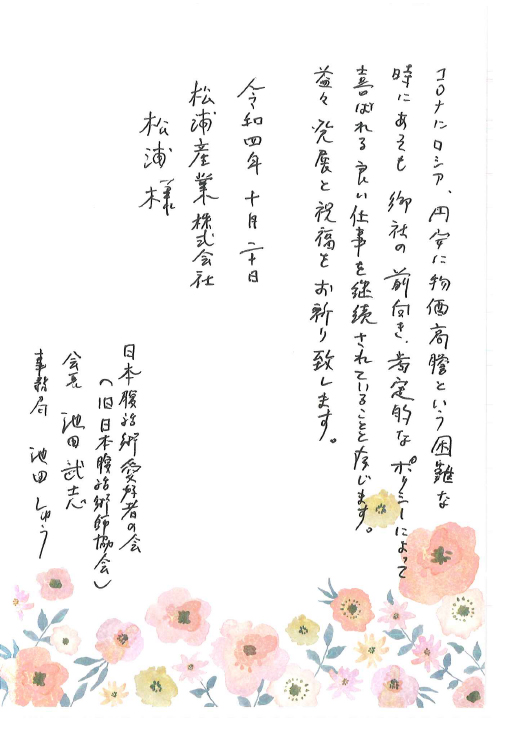 コロナにロシア、円安に物価高騰という困難な
時にあっても御社の前向き、肯定的なポリシーによって
喜ばれる良い仕事を継続されていることと存じます。
益々発展と祝福をお祈り致します。
令和四年 十月二十日
松浦産業株式会社
松浦 様
日本腹話術愛好者の会
(旧日本腹話術師協会)
会長 池田武志
事務局 池田しゅう